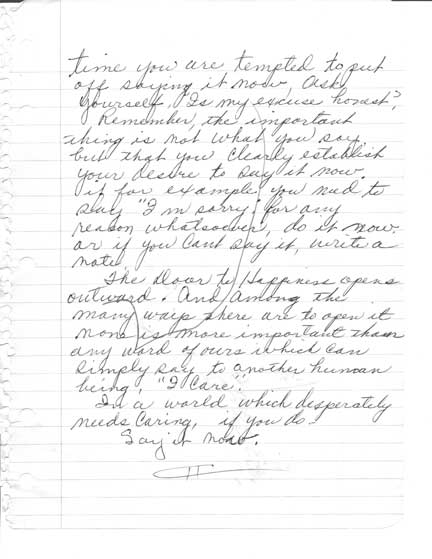 time you are tempted to put
off saying it now, ask
yourself, "Is my excuse honest?
Remember, the important
thing is not what you say
but that you clearly establish
your desire to say it now.
if for example you need to
say "I'm sorry" for any
reason whatsoever, do it now.
or if you can't say it, write a
note.
The Door to Happiness opens
outward. And among the
many ways there are to open it
none is more important than
any word of ours which can
simply say to another human
being, "I Care."
In a world which desperately
needs caring, if you do
Say it now.